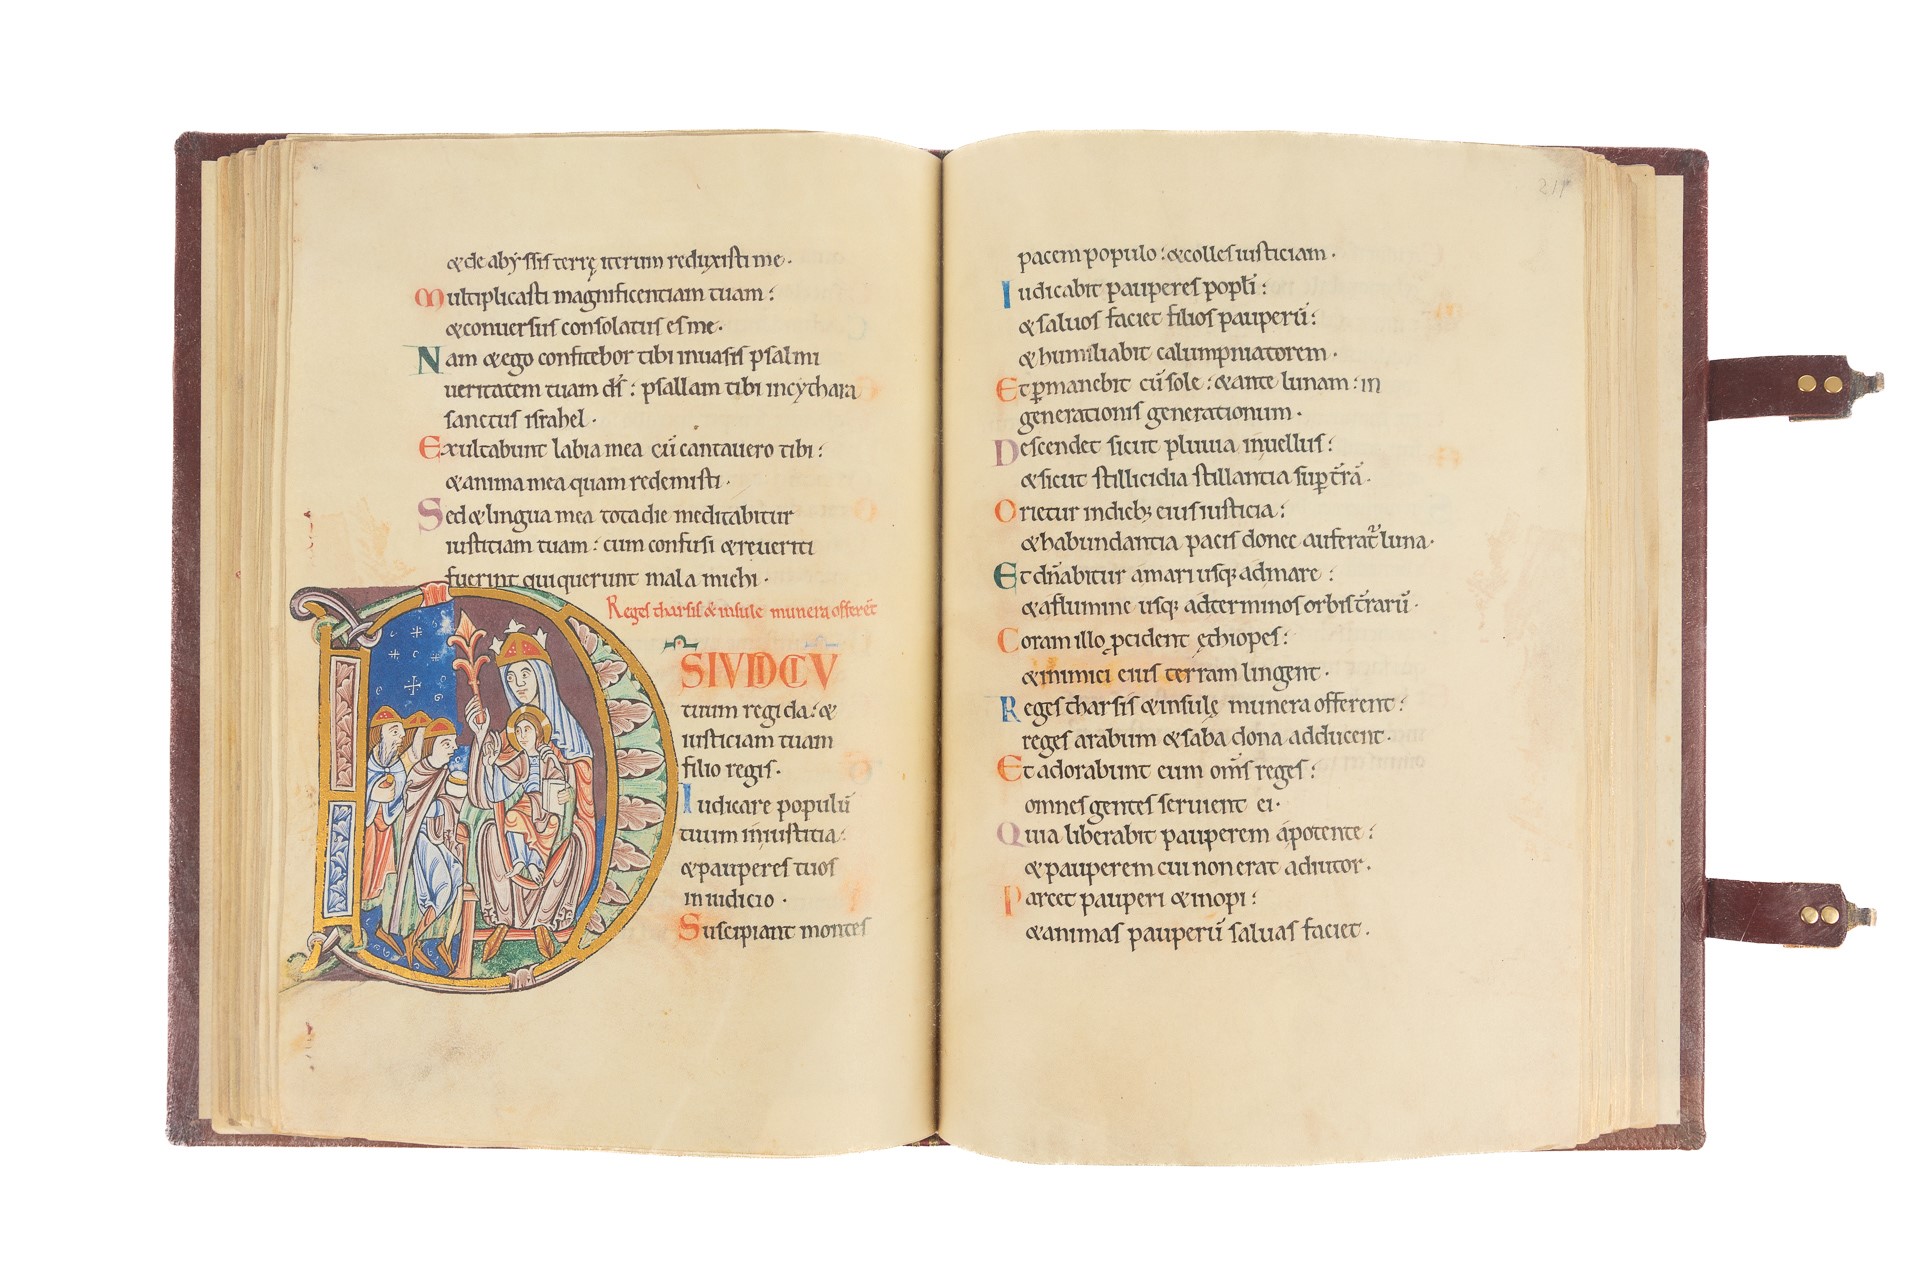 &de abyssis terrę iterum reduxisti me.
Multiplicasti magnificentiam tuam:
&conversus consolatus es me.
Nam &ego confitebor tibi inuasis psalmi
ueritatem tuam dś: psallam tibi incythara
sanctus israhel.
Exultabunt labia mea cū cantauero tibi:
&anima mea quam redemisti.
Sed &lingua mea tota die meditabitur
iustitiam tuam: cum confusi &reueriti
fuerint qui querunt mala michi.
Reges tharsis & insule muneraofferēt
DS IUDICIŪ
tuum regi da: &
iusticiam tuam
filio regis.
Iudicare populū
tuum iniustitia:
&pauperes tuos
in iudicio.
Suscipiant montes
211
pacem populo: &colles iusticiam.
Iudicabit pauperes popłi:
&saluos faciet filios pauperū:
&humiliabit calumpniatorem.
Et ꝑmanebit cū sole: &ante lunam: in
generationis generationum.
Descendet sicut pluuia inuellus:
&sicut stillicidia stillantia suꝑ t̄rā.
Orietur indieb; eius iusticia:
&habundantia pacis donec auferat̄ luna.
Et dn̄abitur amari usq; admare:
&aflumine usq; adterminos orbis t̄rarū.
Coram illo ꝓcident ethiopes:
&inimici eius terram lingent.
Reges tharsis &insulę munera offerent:
reges arabum &saba dona adducent.
Et adorabunt eum om̄s reges:
omnes gentes seruient ei.
Quia liberabit pauperem apotente:
&pauperem cui non erat adiutor.
Parcet pauperi &inopi:
&animas pauperū saluas faciet.